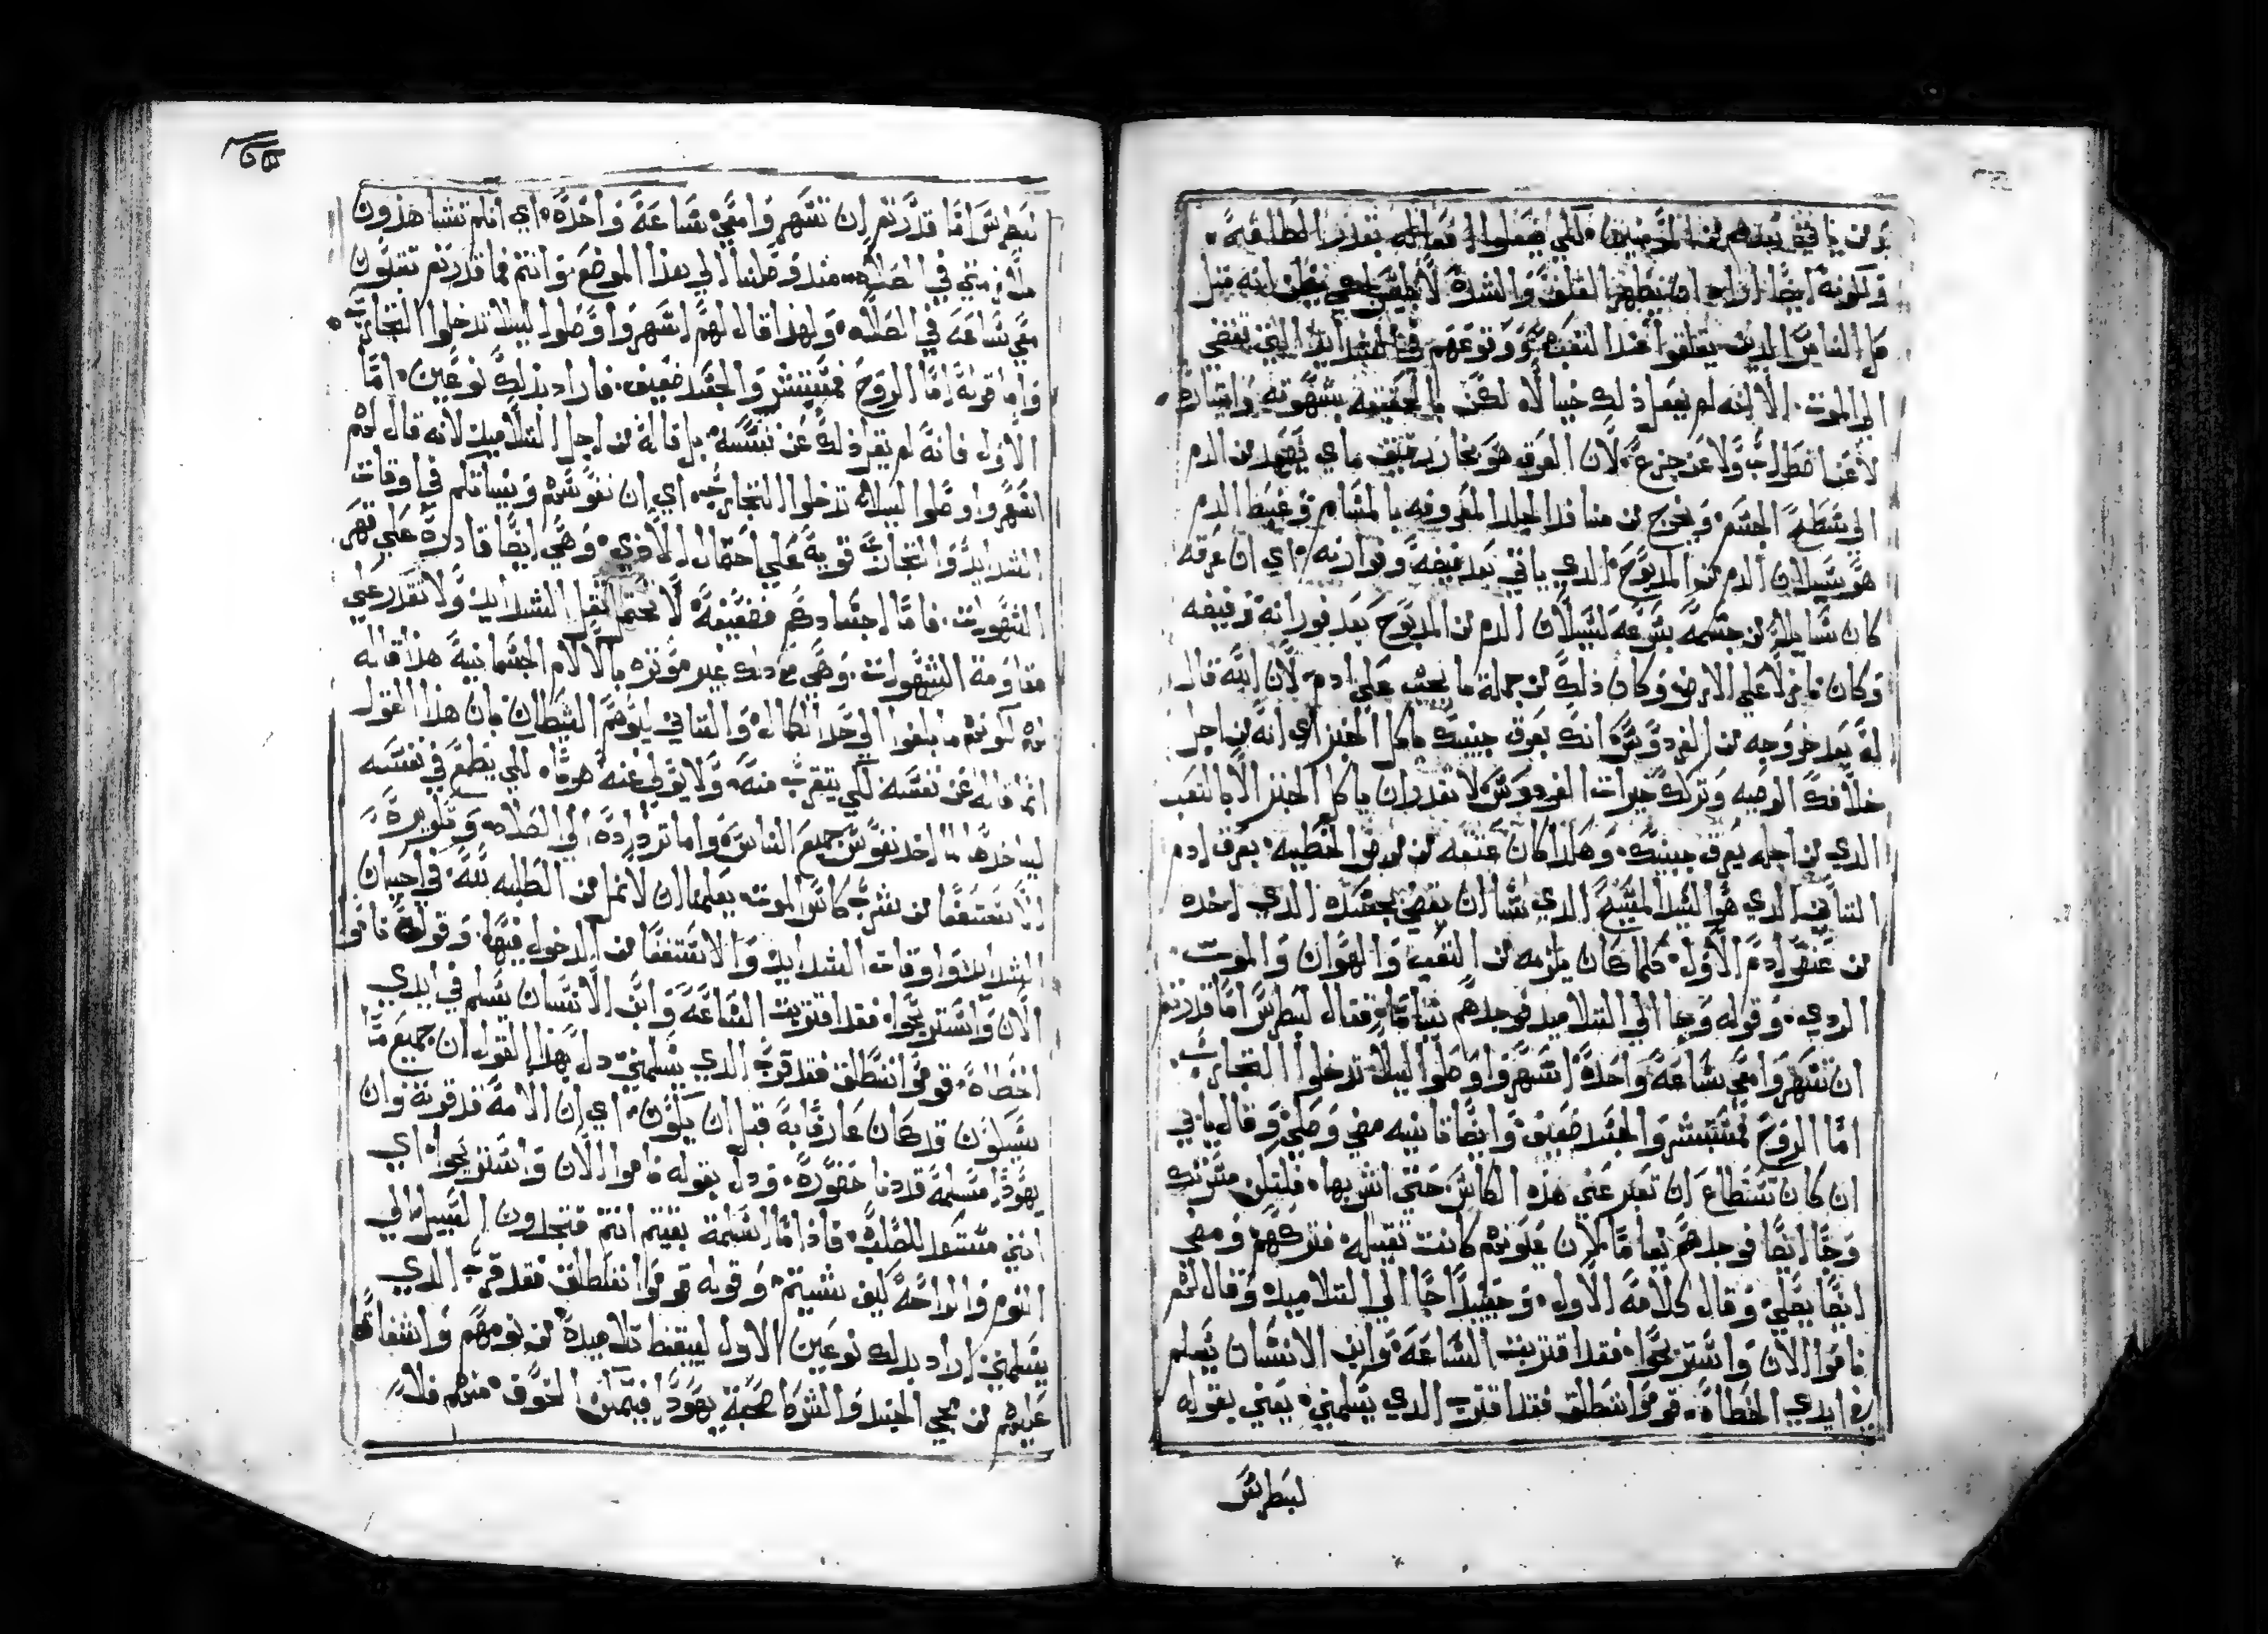 من ياتي بعدهم من المومنين لكي يفعلوا افعاله بقدر الطاقه
وكونه ايضا اراد ان يظهر القلق والشده
كل الناس الدين يقلقوا عند التعب ووقوعهم في الشدايد التي تفضي
الي الموت الا انه لم يفعل ذلك خيالا لكن بالحقيقه بشهوته واختياره
لا عن اضطراب ولا عن جزع لان العرق هو بخار رقيق ماي يصعد من الدم
الي سطح الجسم ويخرج من منافد الجلد المعروفه بالمسام وعبط الدم
هو سيلان الدم من المدبوح الدي ياتي بعد فيضه وفوارنه اي ان عرقه
كان سايلا من جسمه بسرعه لسيلان الدم من المدبوح بعد فورانه
وكان نازلا علي الارض وكان ذلك من جملة ما يجب علي ادم لان الله قال
له بعد خروجه من الفردوس انك بعرق جبينك تاكل الخبز اي انه من اجل
خلافك الوصيه وتركك خيرات الفردوس لا تقدر ان تاكل الخبز الا بالتعب
الدي من اجله يعرق جبينك وهكذا كان عتقه من مرض الخطيه بعرق ادم
التاني الدي هو السيد المسيح الدي شا ان يقضي بجسده الدي اخده
من عنصر ادم الاول كلما كان يلزمه من التعب والهوان والموت
الردي وقوله وجا الي التلاميد فوجدهم نياما فقال لبطرس اما قدرتم
ان تسهروا معي ساعة واحدة اسهروا وصلوا ليلا تدخلوا التجارب
اما الروح فمستبشر والجسد ضعيف وايضا تانيه مضي وصلي وقال يا ابي
ان كان تستطاع ان تعبر عني هذه الكاس حتي اشربها فلتكن مسرتك
وجا ايضا فوجدهم نياما لان عيونهم كانت تقيله فتركهم ومضي
ايضا يصلي وقال كلامه الاول وحينيدا جا الي التلاميد وقال لهم
ناموا الان واستريحوا فقد اقتربت الساعه وابن الانسان يسلم
في ايدي الخطاه قوموا ننطلق فقد اقترب الدي يسلمني يعني بقوله
لبطرس
لبطرس اما قدرتم ان تسهروا معي ساعة واحدة اي انكم تشاهدون
ملازمتي في الصلاه مند وصلنا الي هذا الموضع وانتم فما قدرتم تقبلون
معي ساعه في الصلاه ولهذا قال لهم اسهروا وصلوا ليلا تدخلوا التجارب
واما قوله اما الروح فمستبشر والجسد ضعيف فاراد بذلك نوعين اما
الاول فانه لم يقل ذلك عن نفسه بل قاله من اجل التلاميد لانه قال لهم
اسهروا وصلوا ليلا تدخلوا التجارب اي ان نفوسكم ونياتكم في اوقات
الشدايد والتجارب قوية علي احتمال الادي وهي ايضا قادره علي قهر
الشهوات فاما اجسادكم فضعيفة لا تحتمل تقل الشدايد ولا تقدر علي
مقاومة الشهوات وهي مع ذلك غير موتره بالالام الجسمانية هذا قاله
لهم كونهم ما بلغوا الي حد الكمال والتاني ليوهم الشيطان بان هذا القول
انما قاله عن نفسه لكي يتقرب منه ولا يولي عنه هربا لكي يطمع في نفسه
لياخدها كما اخد نفوس جميع الناس واما ترداده الي الصلاه وتكريره
الاستعفا من شرب كاس الموت يعلمنا ان لا نمل من الطلبه لله في احيان
الشدايد واوقات الشدايد والاستعفا من الدخول فيها وقوله ناموا
الان واستريحوا فقد اقتربت الساعة وابن الانسان يسلم في ايدي
الخطاه قوموا ننطلق فقد قرب الدي يسلمني دل بهذا القول ان جميع ما
سيكون قد كان عارفا به قبل ان يكون اي ان الامه قد قربة وان
يهودا مسلمه قد دنا حضوره ودل بقوله ناموا الان واستريحوا اي
انني مستعد للصلب فاذا ما انسلمة بقيتم انتم فتجدون السبيل الي
النوم والراحة كيف شيتم وقوله قوموا ننطلق فقد قرب الدي
يسلمني اراد بدلك نوعين الاول ليقظ تلاميده من نومهم واشفاقا
عليهم من مجي الجند والشرط صحبة يهودا فيتمكن الخوف منهم فلا